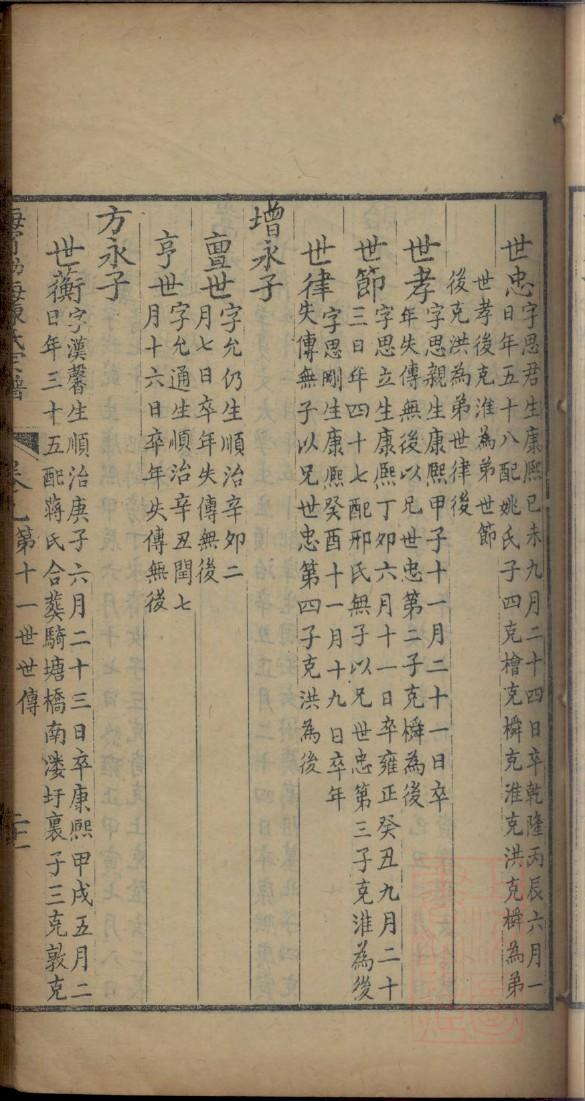 世忠字思君生康熙己未九月二十四日卒乾隆丙辰六月一
日年五十八配姚氏子四克檜克橓克淮克洪克橓為弟
世孝後克淮為弟世節
後克洪為弟世律後
世孝字思親生康熙甲子十一月二十一日卒
年失傳無後以兄世忠第二子克橓為後
世節字思立生康熙丁卯六月十一日卒雍正癸丑九月二十
三日年四十七配邢氏無子以兄世忠第三子克淮為後
世律字思剛生康熙癸酉十一月十九日卒年
失傳無子以兄世忠第四子克洪為後
增永子
亶世字允仍生順治辛卯二
月七日卒年失傳無後
亨世字允通生順治辛丑閏七
月十六日卒年失傳無後
方永子
世蘅字漢馨生順治庚子六月二十三日卒康熙甲戌五月二
日年三十五配蔣氏合葬騎塘橋南漊圩裏子三克敦克
海陳氏宗譜
第十一世世傳